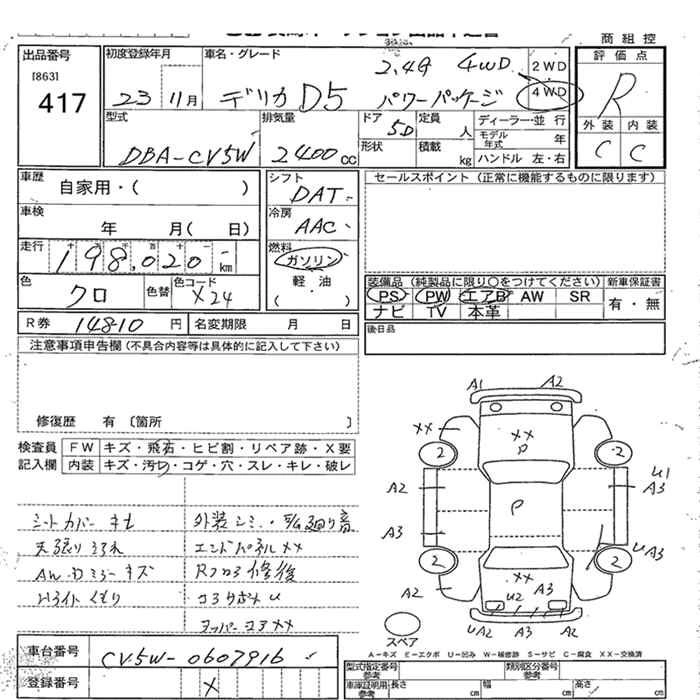 商組控
出品番号
[863]
417
初度登録年月
23 11月
車名・グレード
2,4G 4WD
デリカ D5 パワーパッケージ
2WD
4WD
評価点
R
外装 内装
C C
型式
DBA-CV5W
排気量
2400cc
ドア
5D
定員
人
形状
積載
kg
ディーラー・並行
モデル年式 年
ハンドル 左・右
車歴
自家用・( )
車検
年 月( 日)
走行
198,020 km
色
クロ
色替
色コード
X24
シフト
DAT
冷房
AAC
燃料
ガソリン
軽・油
( )
セールスポイント(正常に機能するものに限ります)
装備品(純製品に限り○をつけてください)
新車保証書
PS PW エアB AW SR
ナビ TV 本革
有・無
R券 14810 円
名変期限 月 日
後日品
注意事項申告欄(不具合内容等は具体的に記入して下さい)
修復歴 有〔箇所 〕
検査員記入欄
FW キズ・飛石・ヒビ割・リペア跡・X要
内装 キズ・汚れ・コゲ・穴・スレ・キレ・破レ
シートカバー キセ
天張り よごれ
AW・Dミラーキズ
Hライト くもり
エンドパネル XX
Rフロア 修後
コアサポメ U
アッパーコア XX
A1 A2
XX
XX
P
2 2
A2
U1
A3
P
A3
U A3
2 2
XX
A2
U2 A3
UA2 A3 U A2
スペア
A-キズ E-エクボ U-凹み W-補修跡 S-サビ C-腐食 XX-交換済
車台番号
CV5W-0607916
登録番号
X
型式指定番号
参考
類別区分番号
参考
車庫証明用
参考
長さ cm
幅 cm
高さ cm